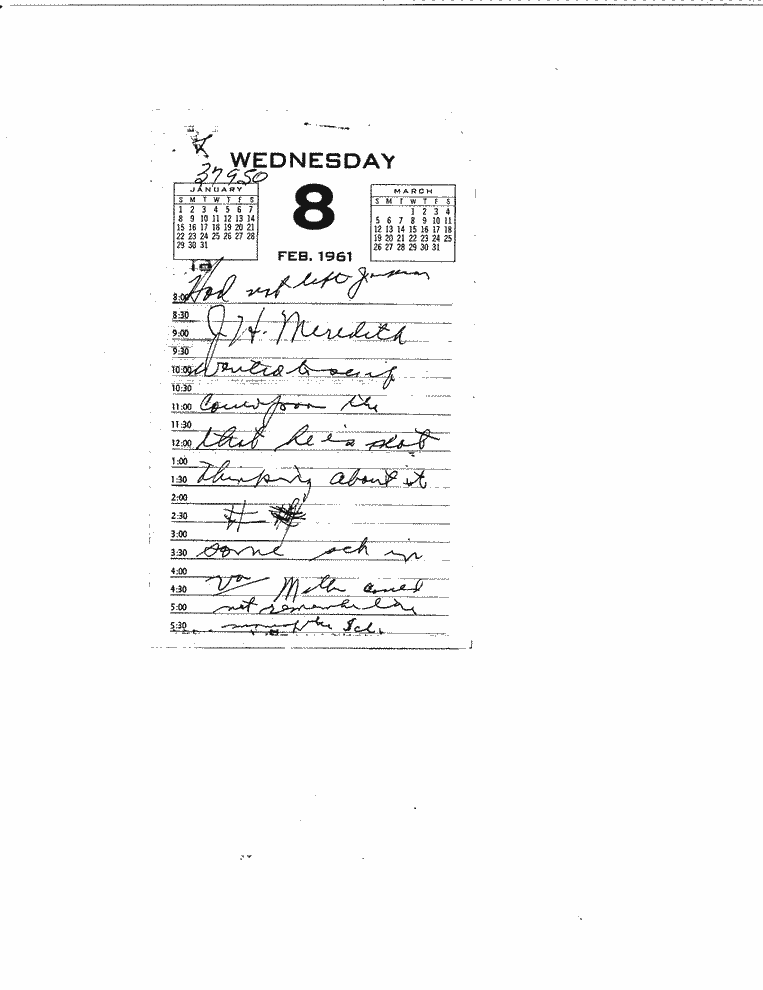 WEDNESDAY
37950
JANUARY
S M T W T F S
1 2 3 4 5 6 7
8 9 10 11 12 13 14
15 16 17 18 19 20 21
22 23 24 25 26 27 28
29 30 31
8
FEB. 1961
MARCH
S M T W T F S
1 2 3 4
5 6 7 8 9 10 11
12 13 14 15 16 17 18
19 20 21 22 23 24 25
26 27 28 29 30 31
Had not left
8:00
8:30
J H. Meredith
9:00
9:30
10:00 wanted to see if
10:30
11:00 the
11:30
12:00 that he is
1:00
1:30 thinking about it
2:00
2:30
3:00
3:30 some sch in
4:00
4:30 Va
5:00 not remember
5:30 Sch.